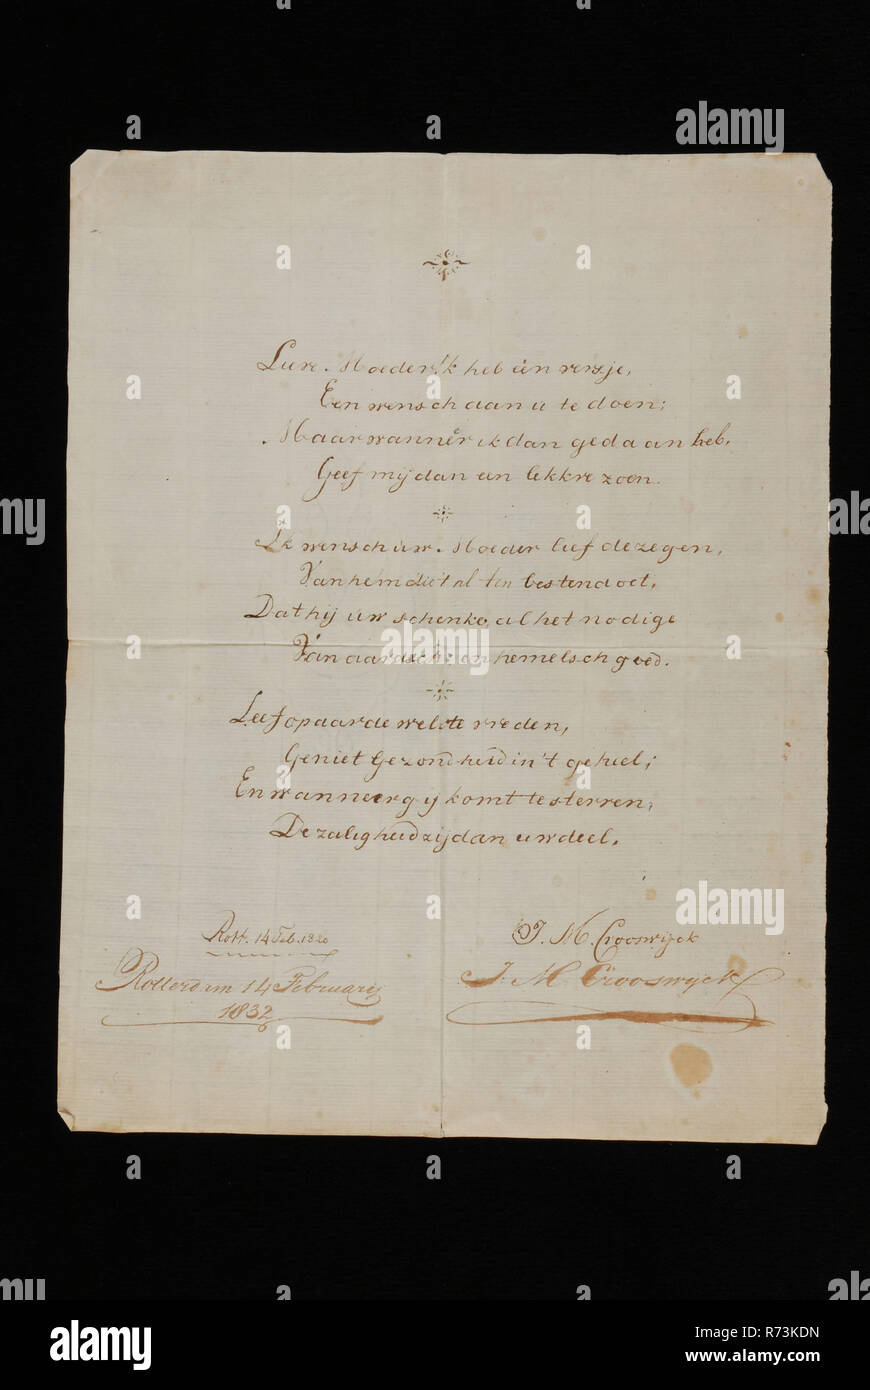 Lieve Moeder! 'k heb een versje,
Een wensch aan u te doen;
Maar wanneer ik dan gedaan heb,
Geef mij dan een lekkre zoen.
Ik wensch uw Moeder lief de zegen,
Van hem die 't al ten besten doet,
Dat hij uw schenke al het nodige
Van aardsch en hemelsch goed.
Leef op aarde wel te vreden,
Geniet Gezondheid in 't geheel;
En wanneer gij komt te sterven,
De zaligheid zij dan uw deel.
Rott. 14 Feb. 1820
J. M. Crooswijck
Rotterdam 14 Februarij
1832
J M Crooswyck
alamy
a
Image ID: R73KDN
www.alamy.com